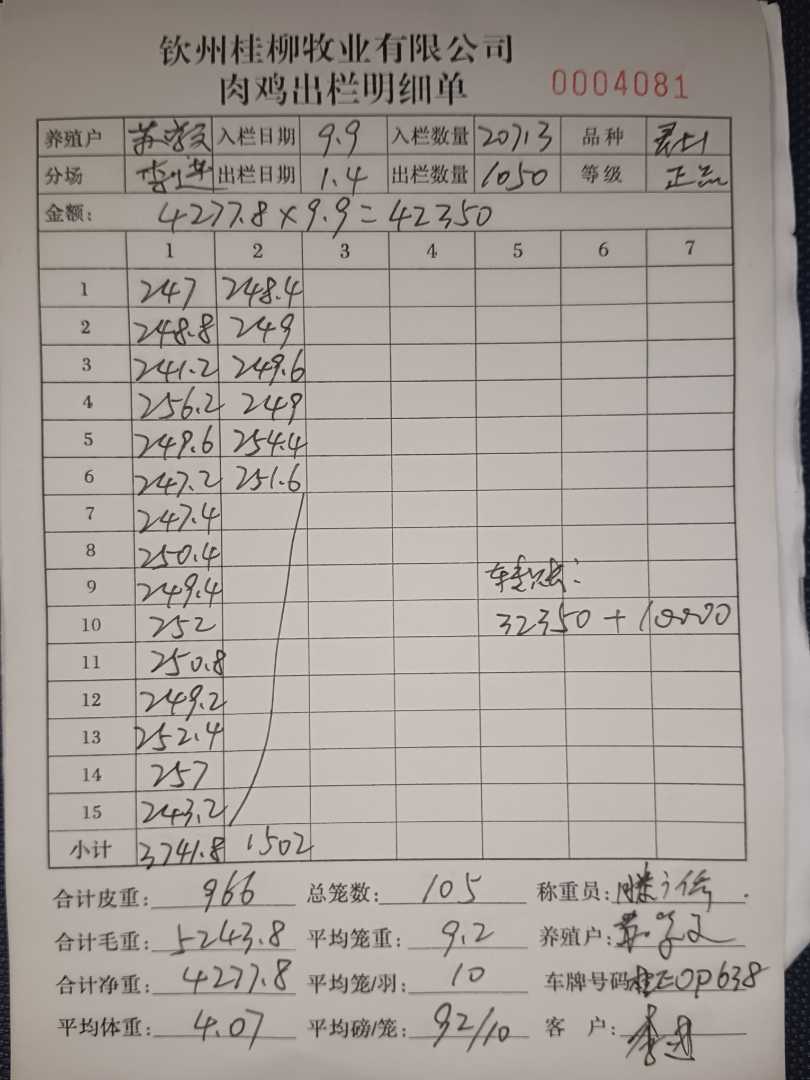 钦州桂柳牧业有限公司
肉鸡出栏明细单 0004081
养殖户 入栏日期 9.9 入栏数量 20713 品种
分场 出栏日期 1.4 出栏数量 1050 等级 正品
金额: 4277.8×9.9=42350
1 2 3 4 5 6 7
1 247 248.4
2 248.8 249
3 241.2 249.6
4 256.2 249
5 249.6 254.4
6 247.2 251.6
7 247.4
8 250.4
9 249.4
10 252 32350+10000
11 250.8
12 249.2
13 252.4
14 257
15 243.2
小计 3741.8 1502
合计皮重: 966 总笼数: 105 称重员:
合计毛重: 5243.8 平均笼重: 9.2 养殖户:
合计净重: 4277.8 平均笼/羽: 10 车牌号码: 桂E0P638
平均体重: 4.07 平均磅/笼: 92/10 客户: 李进